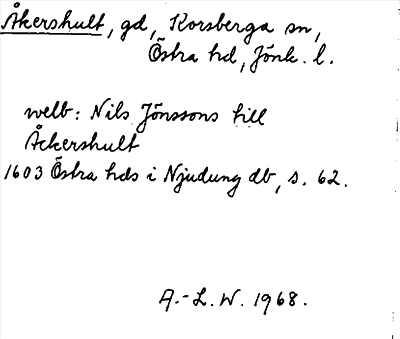 Åkershult, gd, Korsberga sn,
Östra hd, Jönk. l.
welb: Nils Jönssons till
Åckershult
1603 Östra hds i Njudung db, s. 62.
A.-L. W. 1968.